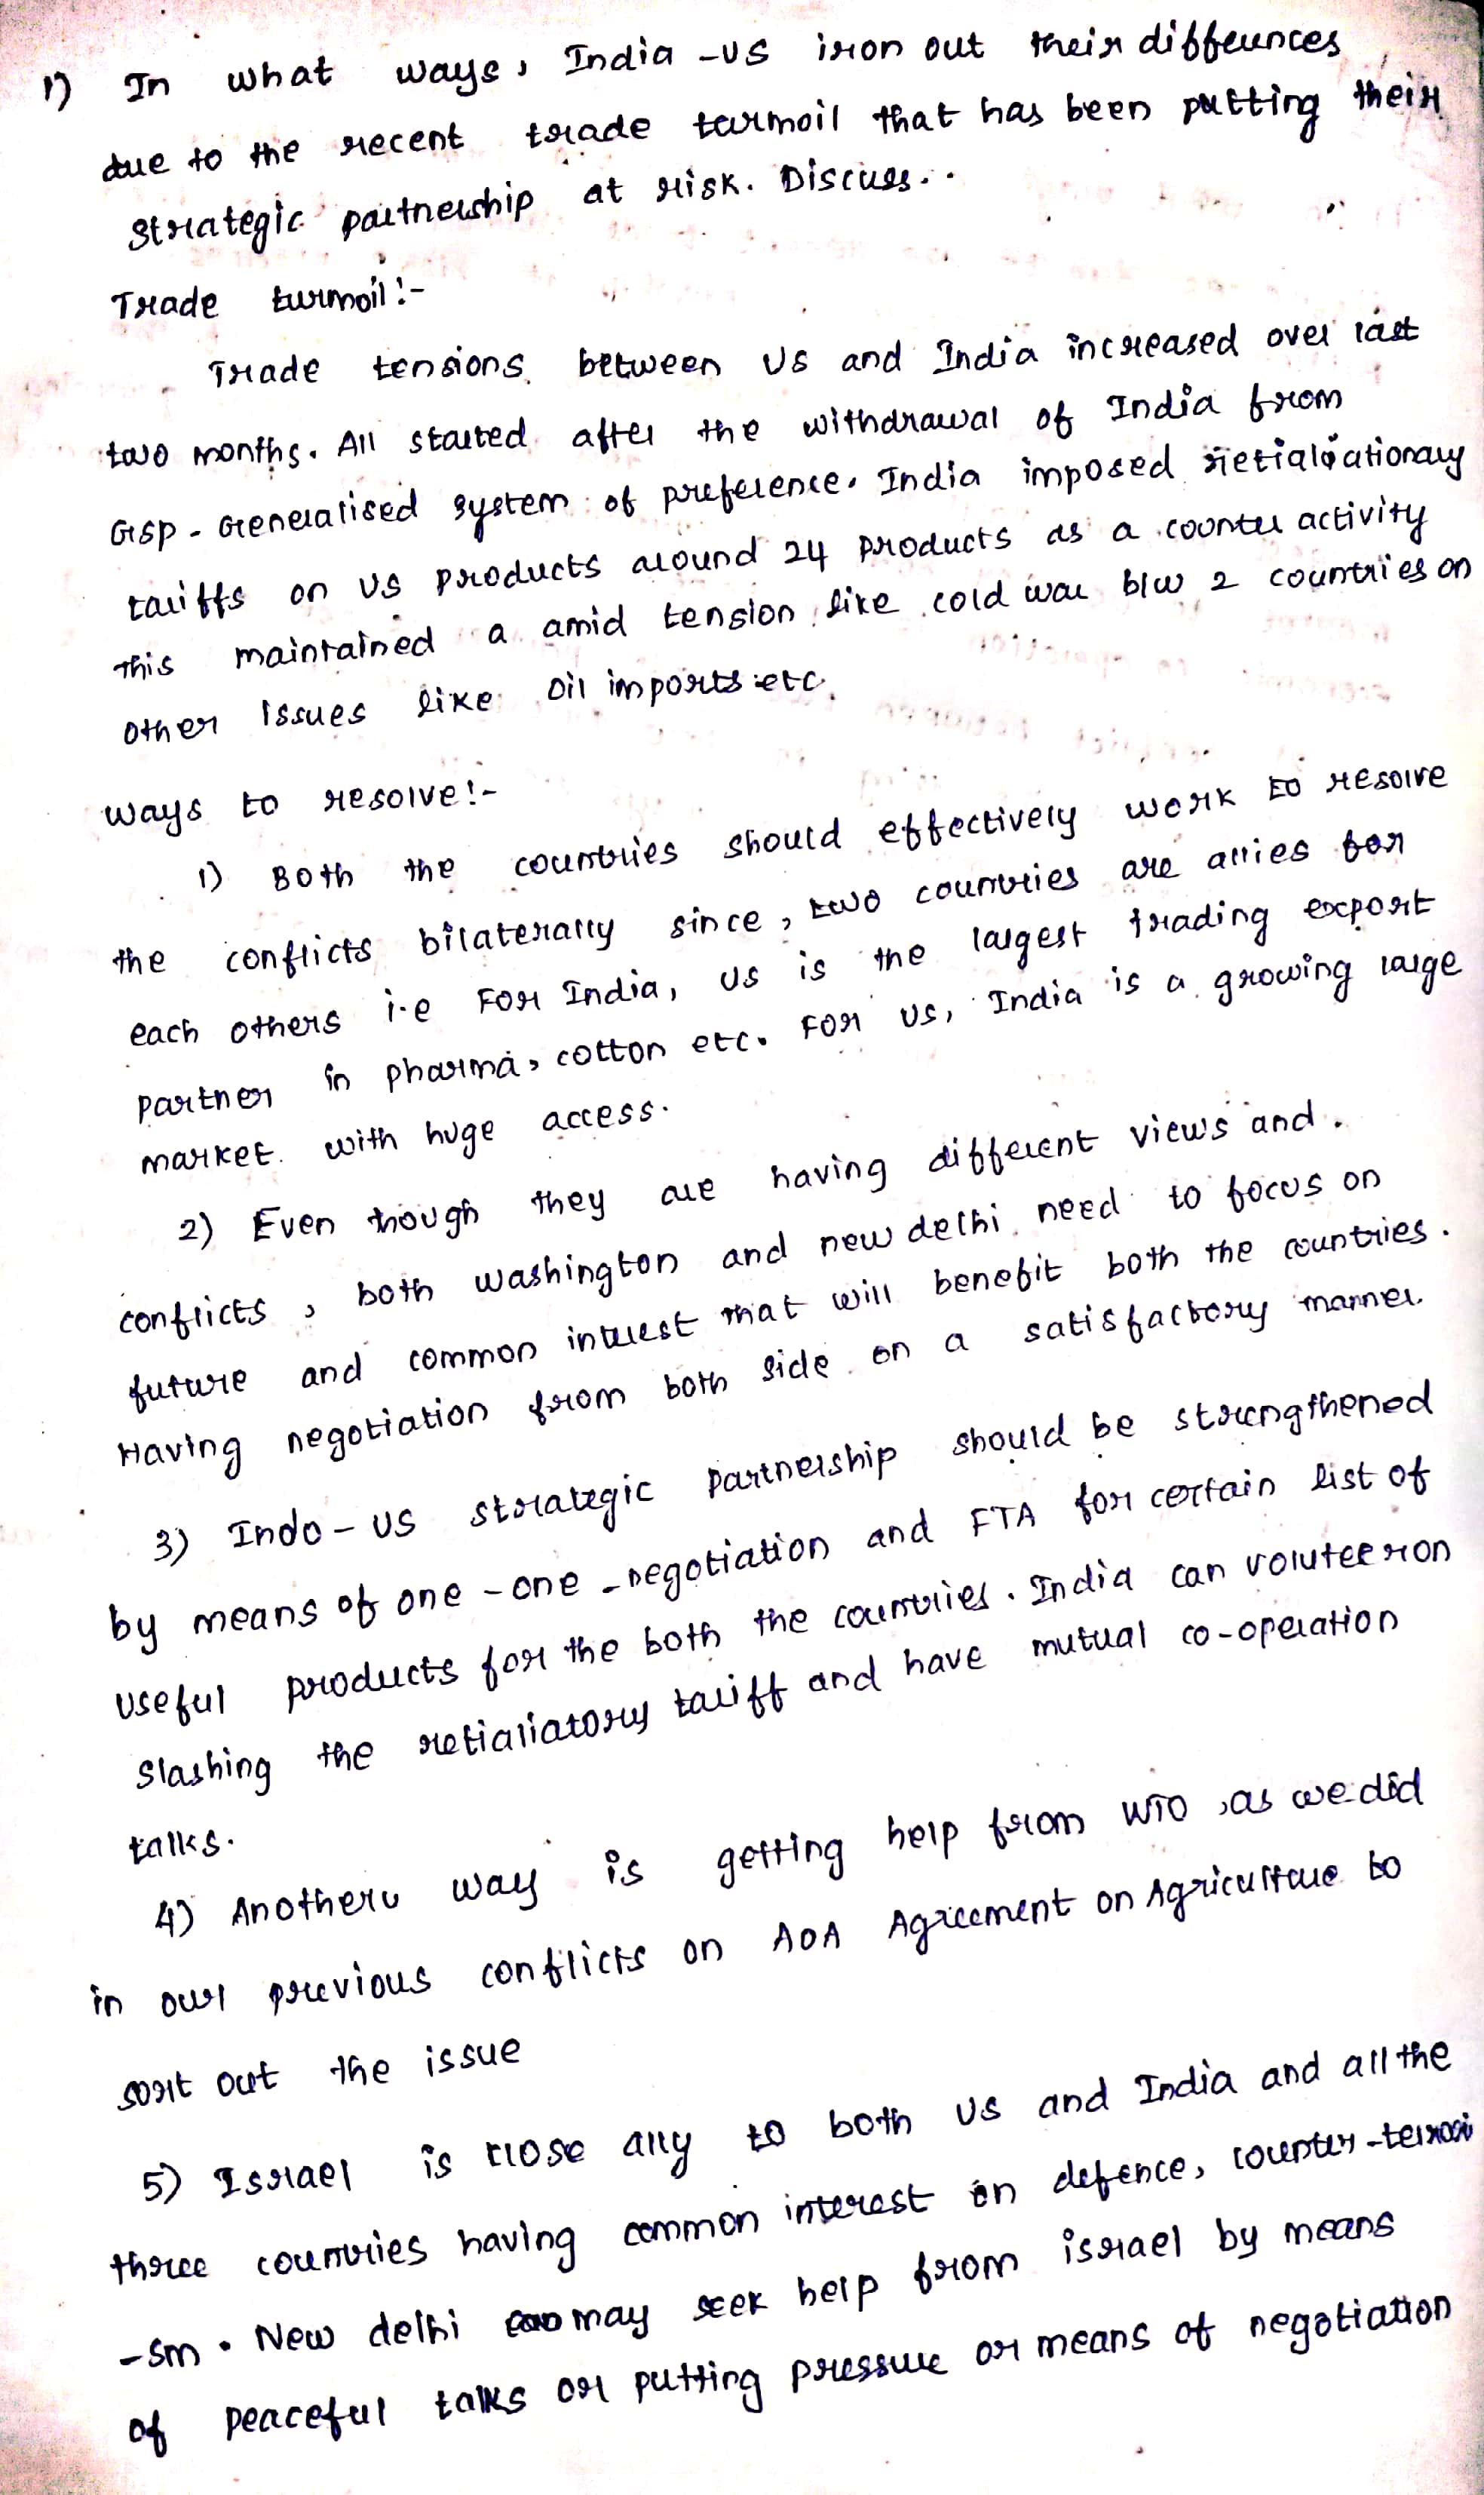 1) In what ways, India -US iron out their diffeunces
due to the recent trade turmoil that has been putting their
strategic partnership at risk. Discuss..
Trade turmoil:-
Trade tensions between US and India increased over last
two months. All started after the withdrawal of India from
GSP - Generalised system of preference. India imposed retialoationary
tariffs on US products around 24 products as a counter activity
This maintained a amid tension like cold war b/w 2 countries on
other issues like oil imports etc.
ways to resolve:-
1) Both the countries should effectively work to resolve
the conflicts bilaterally since, two countries are allies for
each others i.e For India, US is the largest trading export
partner in pharma, cotton etc. For US, India is a growing large
market with huge access.
2) Even though they are having different views and
conflicts, both washington and new delhi need to focus on
future and common interest that will benefit both the countries.
Having negotiation from both side on a satisfactory manner.
3) Indo - US strategic partnership should be strengthened
by means of one - one - negotiation and FTA for certain list of
useful products for the both the countries. India can voluteer on
slashing the retialiatory tariff and have mutual co-operation
talks.
4) Another way is getting help from WTO, as we did
in our previous conflicts on AOA Agreement on Agriculture to
sort out the issue
5) Israel is close ally to both US and India and all the
three countries having common interest on defence, counter-terrori
-sm. New delhi may seek help from israel by means
of peaceful talks or putting pressure or means of negotiation